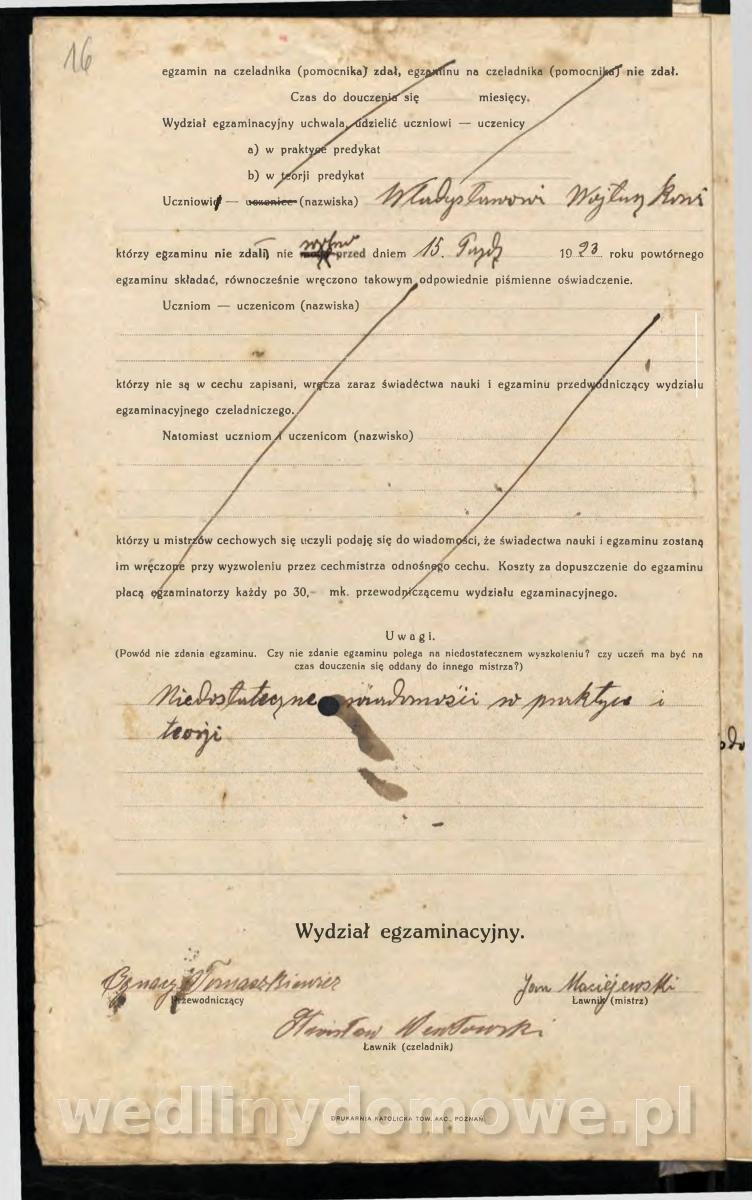 16
egzamin na czeladnika (pomocnika) zdał, egzaminu na czeladnika (pomocnika) nie zdał.
Czas do douczenia się miesięcy.
Wydział egzaminacyjny uchwala, udzielić uczniowi — uczenicy
a) w praktyce predykat
b) w teorji predykat
Uczniowi — uczenice (nazwiska) Władysławowi
którzy egzaminu nie zdali) nie przed dniem 15. 1923 roku powtórnego
egzaminu składać, równocześnie wręczono takowym odpowiednie piśmienne oświadczenie.
Uczniom — uczenicom (nazwiska)
którzy nie są w cechu zapisani, wręcza zaraz świadectwa nauki i egzaminu przedwodniczący wydziału
egzaminacyjnego czeladniczego.
Natomiast uczniom i uczenicom (nazwisko)
którzy u mistrzów cechowych się uczyli podaję się do wiadomości, że świadectwa nauki i egzaminu zostaną
im wręczone przy wyzwoleniu przez cechmistrza odnośnego cechu. Koszty za dopuszczenie do egzaminu
płacą egzaminatorzy każdy po 30,- mk. przewodniczącemu wydziału egzaminacyjnego.
Uwagi.
(Powód nie zdania egzaminu. Czy nie zdanie egzaminu polega na niedostatecznem wyszkoleniu? czy uczeń ma być na
czas douczenia się oddany do innego mistrza?)
Niedostateczne wiadomości w praktyce i
teorji
Wydział egzaminacyjny.
Ignacy Tomaszkiewicz Jan Maciejewski
Przewodniczący Ławnik (mistrz)
Stanisław
Ławnik (czeladnik)
DRUKARNIA KATOLICKA TOW. AKC., POZNAŃ
wedlinydomowe.pl